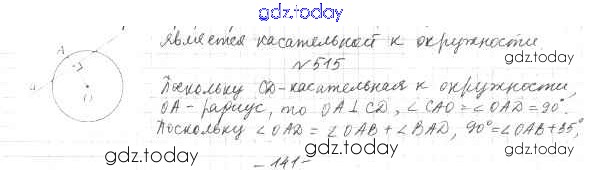 gdz.today
является касательной к окружности
gdz.today
N 515
A
a
O
Поскольку CD-касательная к окружности,
OA - радиус, то OA⊥CD, ∠CAO=∠OAD=90°.
Поскольку ∠OAD = ∠OAB + ∠BAD, 90°=∠OAB+35°,
gdz.today
gdz.today
gdz.today
- 141 -